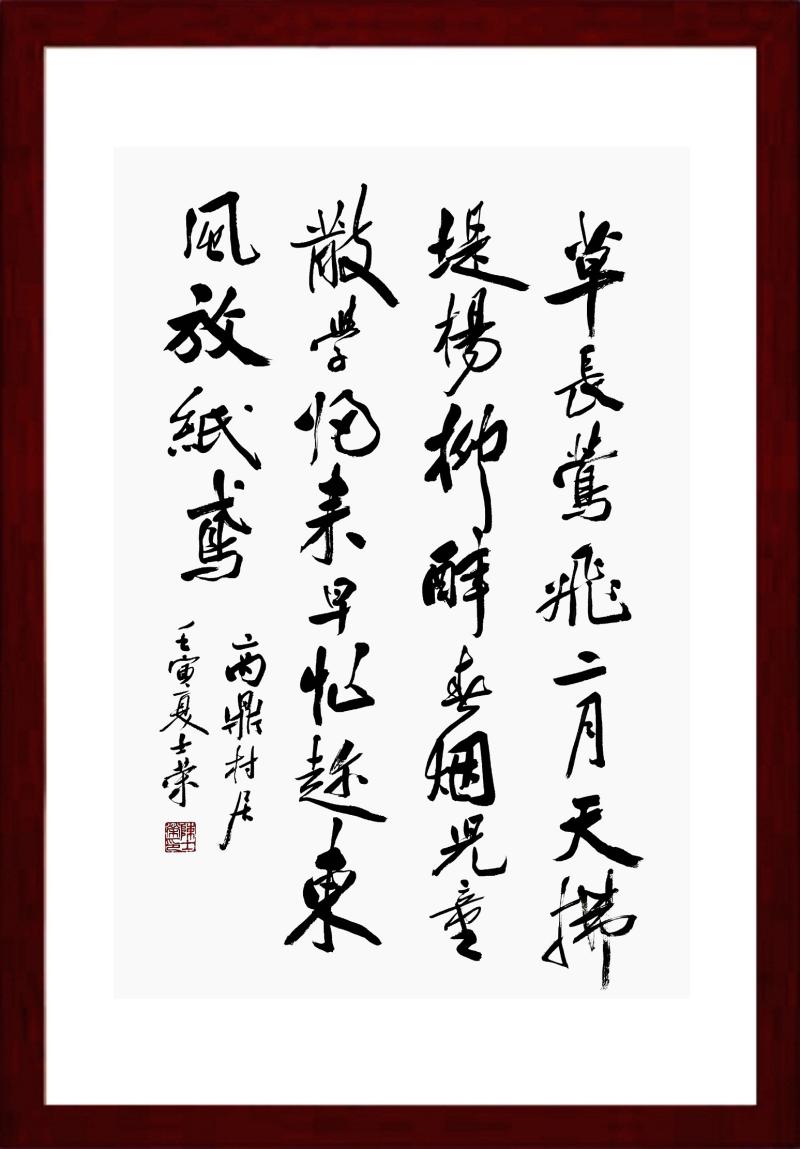 草長鶯飛二月天拂
堤楊柳醉春烟兒童
散學歸来早忙趁東
風放紙鳶
高鼎村居
壬寅夏士榮
陳士榮印